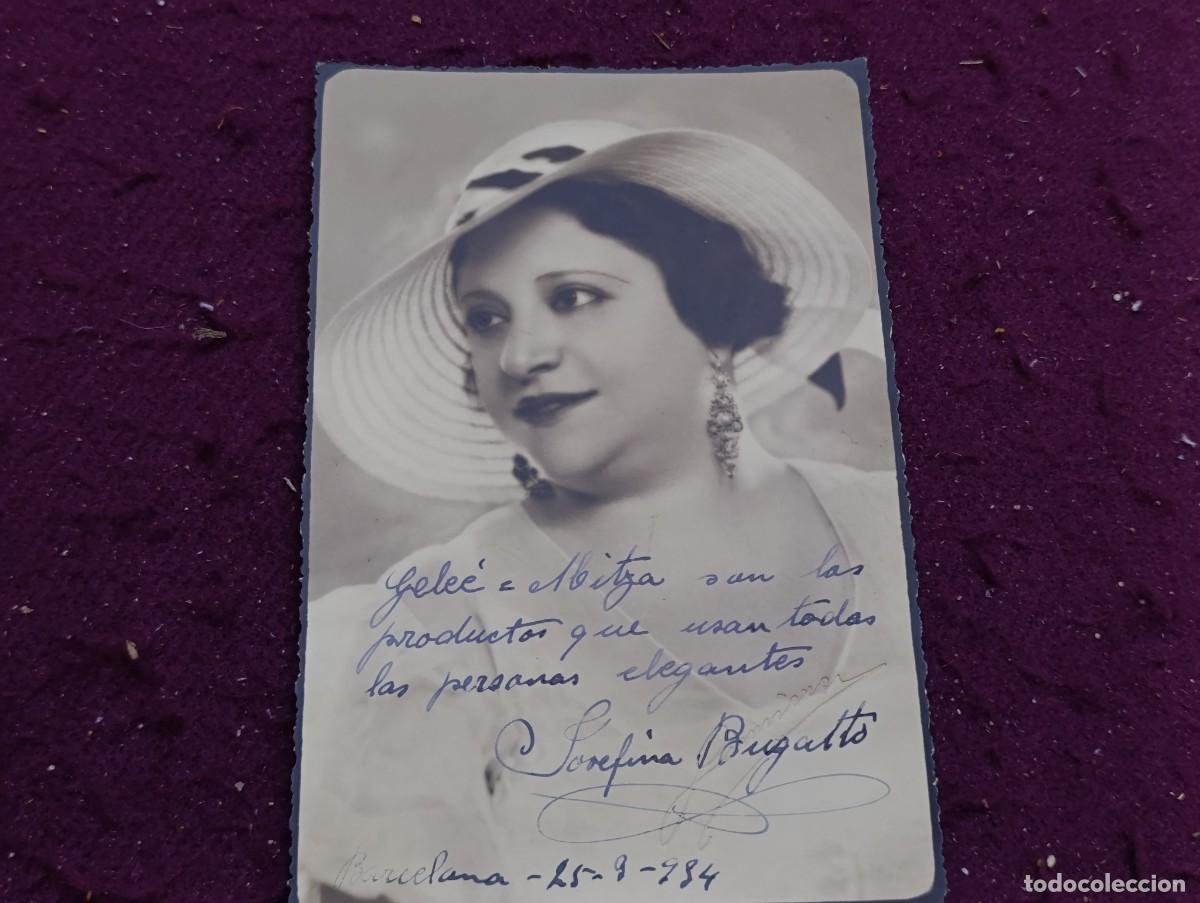 Geleé = Mitza son los
productos que usan todas
las personas elegantes
Josefina Bugatto
Barcelona - 25-9-934
todocoleccion